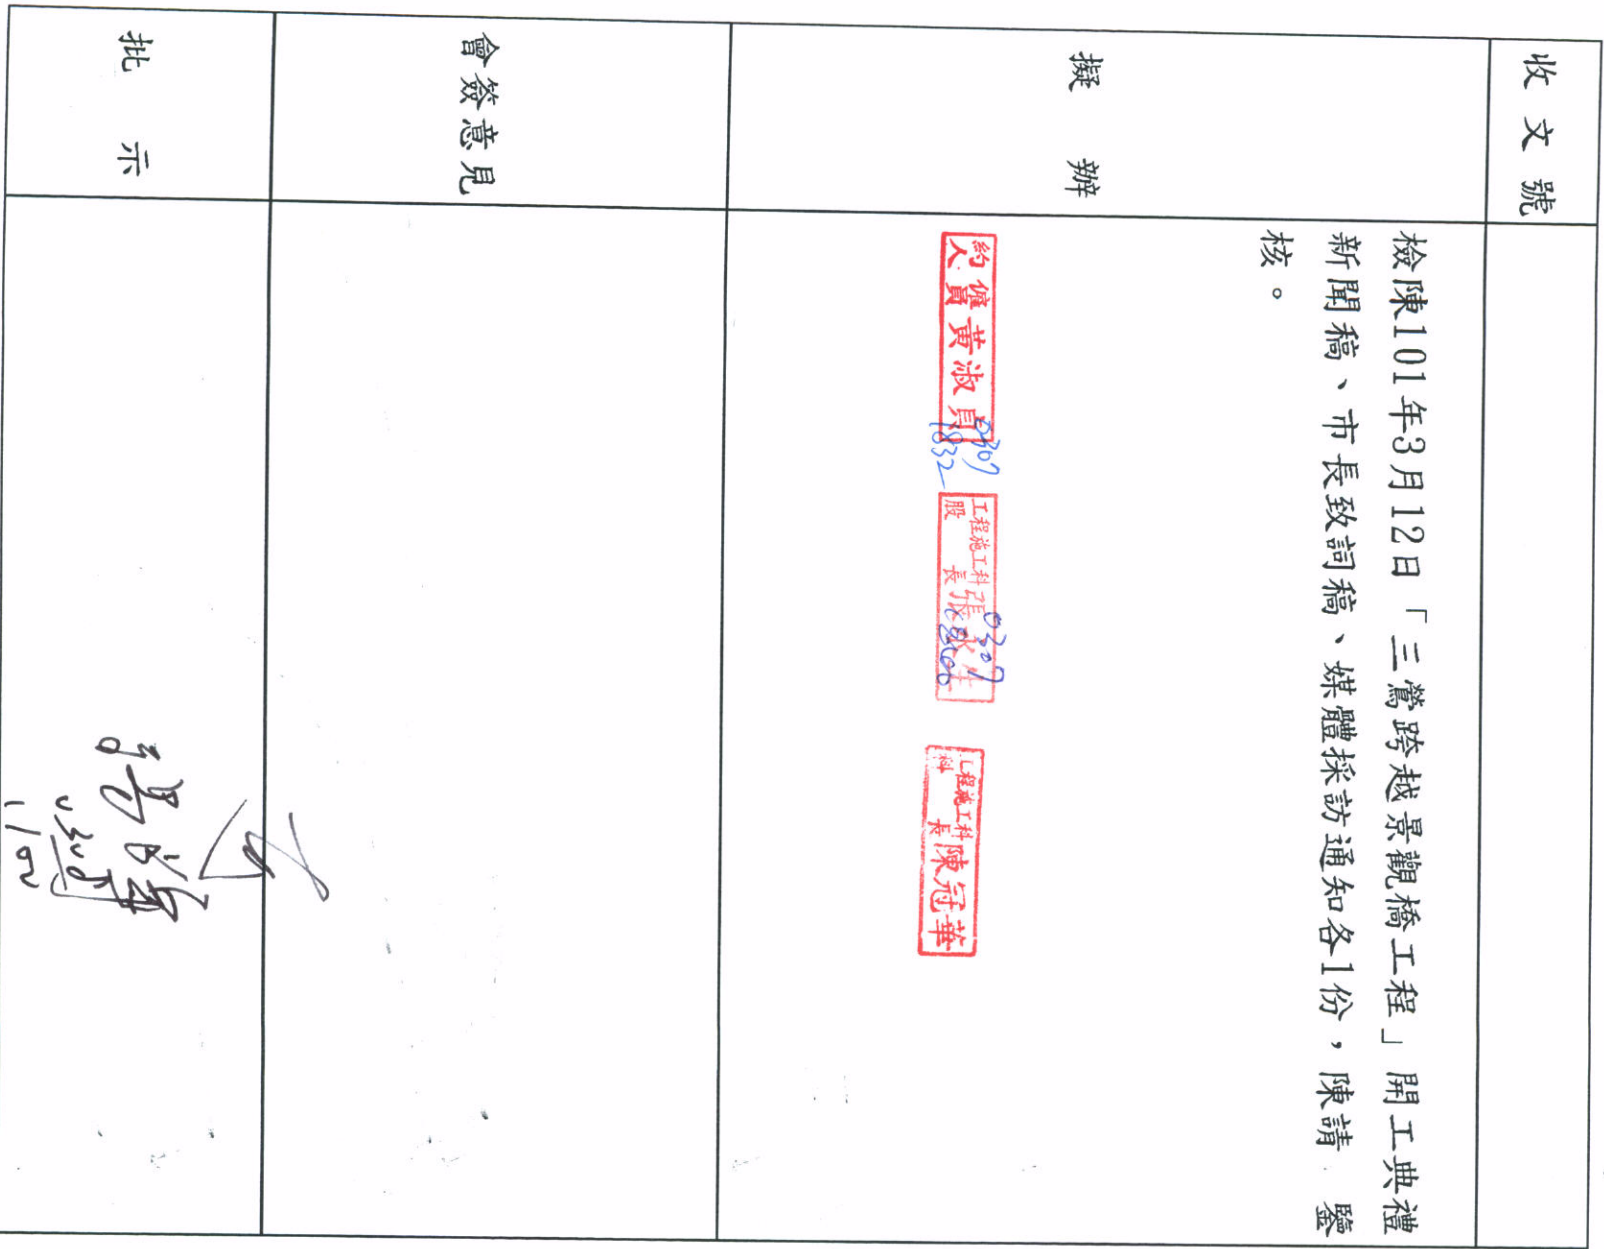 收文號
擬辦
檢陳101年3月12日「三鶯跨越景觀橋工程」開工典禮
新聞稿、市長致詞稿、媒體採訪通知各1份，陳請 鑒
核。
約僱人員 黃淑貞
0307
1832
工程施工科股長
0307
工程施工科科長 陳冠華
會簽意見
批示